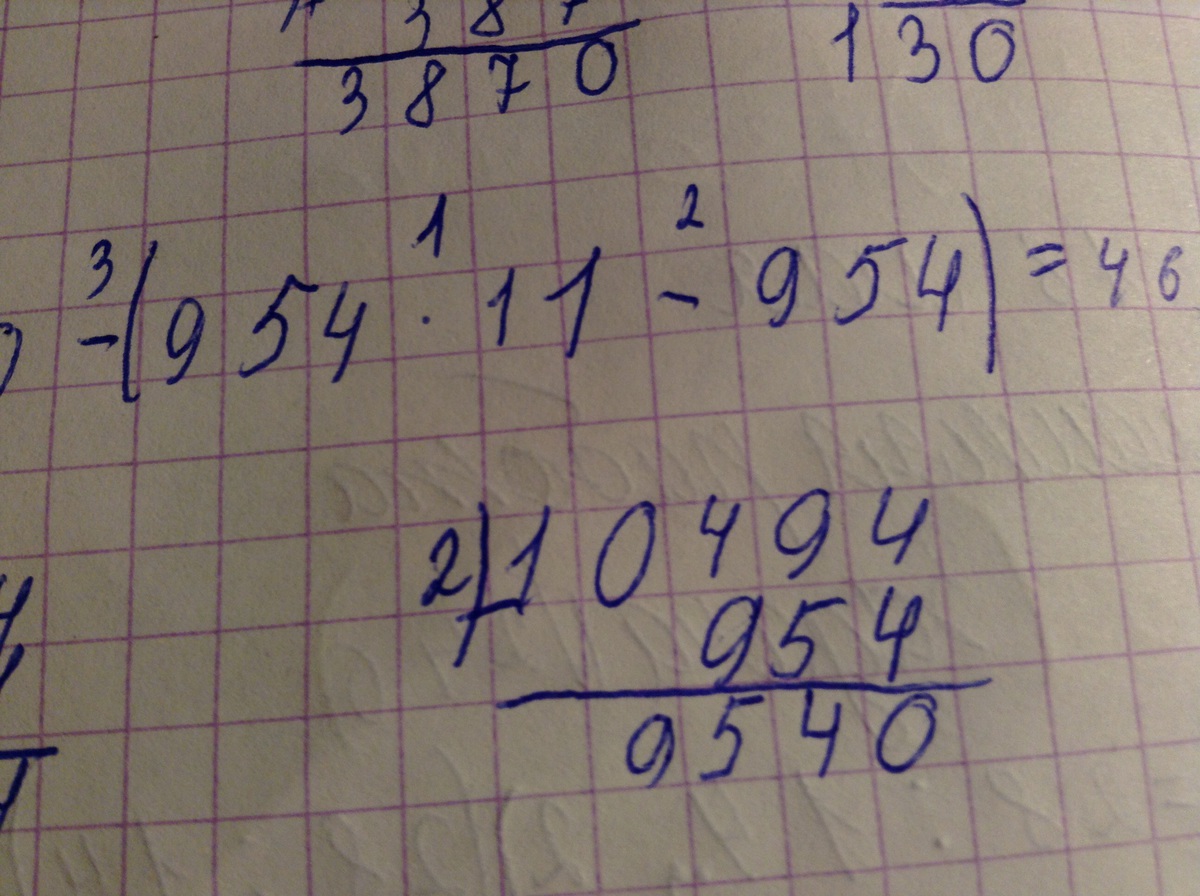 3 8 7
3 8 7 0
1 3 0
3 1 2
-(954 · 11 - 954) = 46
2) 10494
954
9540